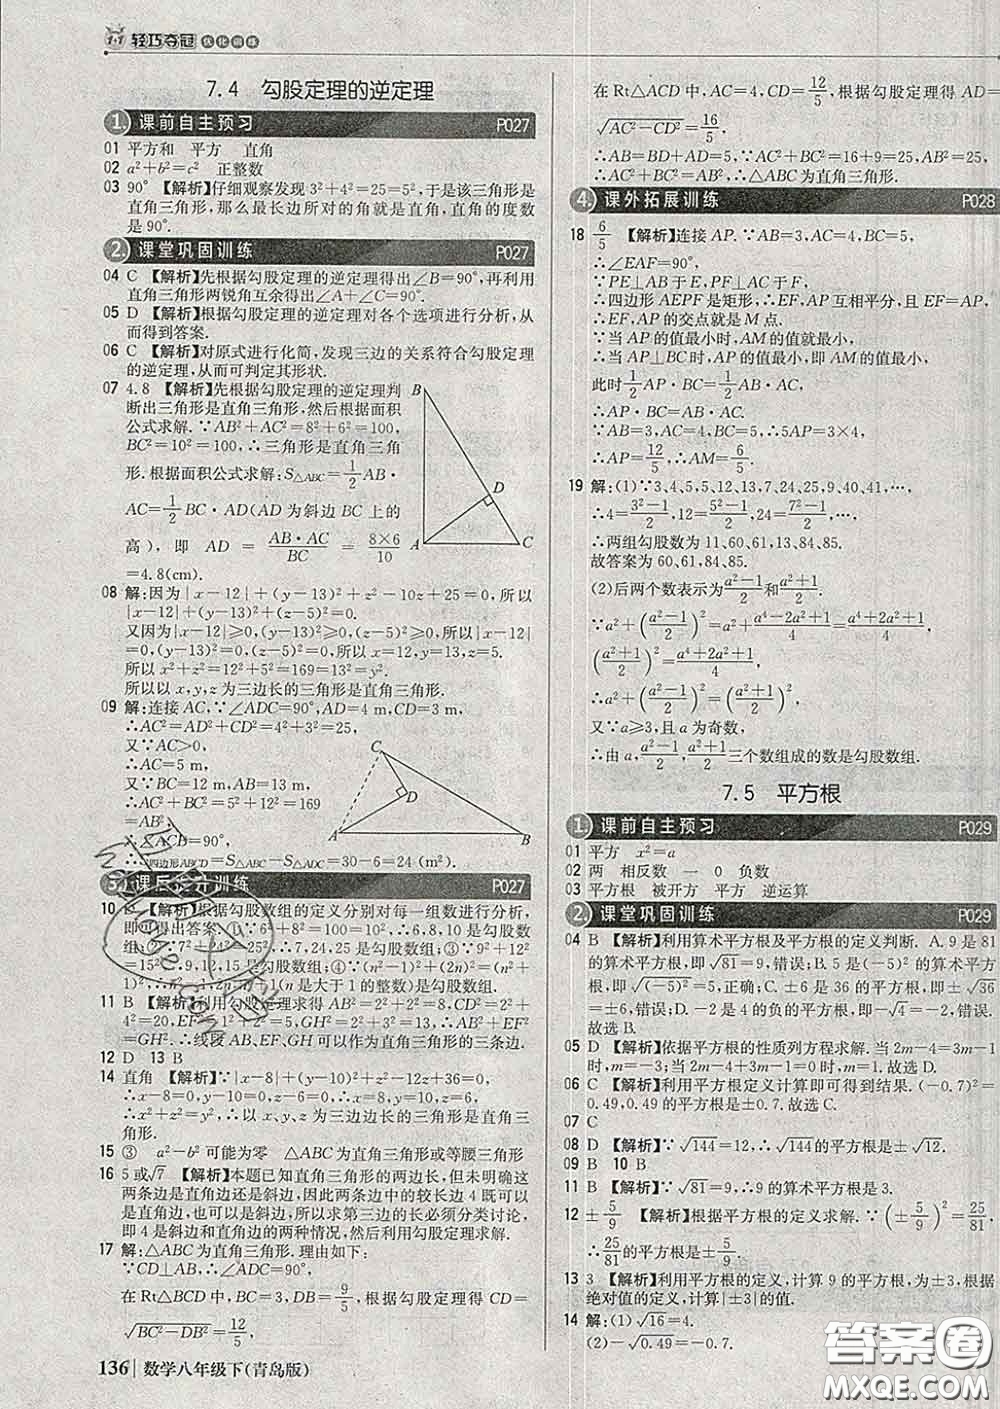 1+1 轻巧夺冠 优化训练
7.4 勾股定理的逆定理
1. 课前自主预习 P027
01 平方和 平方 直角
02 a²+b²=c² 正整数
03 90° 【解析】仔细观察发现3²+4²=25=5²,于是该三角形是
直角三角形,那么最长边所对的角为直角,直角的度数
是90°.
2. 课堂巩固训练 P027
04 C 【解析】先根据勾股定理的逆定理得出∠B=90°,再利用
直角三角形两锐角互余得出∠A+∠C=90°.
05 D 【解析】根据勾股定理的逆定理对各个选项进行分析,从
而得到答案.
06 C 【解析】对原式进行化简,发现三边的关系符合勾股定理
的逆定理,从而可判定其形状.
07 4.8 【解析】先根据勾股定理的逆定理判
断出三角形是直角三角形,然后根据面积
公式求解.∵AB²+AC²=8²+6²=100,
BC²=10²=100,∴三角形是直角三角
形.根据面积公式求解:S△ABC=1/2 AB·
AC=1/2 BC·AD(AD为斜边BC上的
高),即 AD = AB·AC/BC = 8×6/10
=4.8(cm).
B
D
A
C
08 解:因为|x-12|+(y-13)²+z²-10z+25=0,所以
|x-12|+(y-13)²+(z-5)²=0.
又因为|x-12|≥0,(y-13)²≥0,(z-5)²≥0,所以|x-12|
=0,(y-13)²=0,(z-5)²=0,所以x=12,y=13,z=5.
所以x²+z²=12²+5²=169=13²=y².
所以以x,y,z为三边长的三角形是直角三角形.
09 解:连接AC,∵∠ADC=90°,AD=4 m,CD=3 m,
∴AC²=AD²+CD²=4²+3²=25,
又∵AC>0,
∴AC=5 m,
又∵BC=12 m,AB=13 m,
∴AC²+BC²=5²+12²=169
=AB²,
∴∠ACB=90°,
∴S四边形ABCD=S△ABC-S△ADC=30-6=24(m²).
C
D
A
B
3. 课后提升训练 P027
10 【解析】根据勾股数组的定义分别对每一组数进行分析,
即可得出答案.①∵6²+8²=100=10²,∴6,8,10是勾股数
组;②∵7²+24²=25²,∴7,24,25是勾股数组;③∵9²+12²
=15²,∴9,12,15是勾股数组;④∵(n²-1)²+(2n)²=(n²
+1)²,∴(n是大于1的整数)是勾股数组.
11 B 【解析】利用勾股定理求得AB²=2²+2²=8,CD²=2²+
4²=20,EF²=1²+2²=5,GH²=2²+3²=13,∴AB²+EF²
=GH².∴线段AB、EF、GH可以作为直角三角形的三条边.
12 D 13 B
14 直角 【解析】∵|x-8|+(y-10)²+z²-12z+36=0,
∴x-8=0,y-10=0,z-6=0,∴x=8,y=10,z=6,
∴x²+z²=y²,∴以x、y、z为三边边长的三角形是直角三
角形.
15 ③ a²-b²可能为零 △ABC为直角三角形或等腰三角形
16 5或√7 【解析】本题已知直角三角形的两边长,但未明确这
两条边是直角边还是斜边,因此两条边中的较长边4既可以
是直角边,也可以是斜边,所以求第三边的长必须分类讨论,
即4是斜边和直角边的两种情况,然后利用勾股定理求解.
17 解:△ABC为直角三角形.理由如下:
∵CD⊥AB,∴∠CDA=90°.
在Rt△BCD中,BC=3,DB=9/5,根据勾股定理得CD=
√(BC²-DB²)=12/5,
136 数学八年级下(青岛版)
在Rt△ACD中,AC=4,CD=12/5,根据勾股定理得AD=
√(AC²-CD²)=16/5,
∴AB=BD+AD=5.∵AC²+BC²=16+9=25,AB²=25,
∴AC²+BC²=AB²,∴△ABC为直角三角形.
4. 课外拓展训练 P028
18 6/5 【解析】连接AP.∵AB=3,AC=4,BC=5,
∴∠EAF=90°.
∵PE⊥AB于E,PF⊥AC于F,
∴四边形AEPF是矩形,∴EF,AP互相平分,且EF=AP,
∴EF,AP的交点就是M点.
∵当AP的值最小时,AM的值就最小,
∴当AP⊥BC时,AP的值最小,即AM的值最小.
此时1/2 AP·BC=1/2 AB·AC.
∴AP·BC=AB·AC.
∵AB=3,AC=4,BC=5,∴5AP=3×4,
∴AP=12/5,∴AM=6/5.
19 解:(1)∵3,4,5,5,12,13,7,24,25,9,40,41,…,
∴4=(3²-1)/2,12=(5²-1)/2,24=(7²-1)/2,…
∴两组勾股数为11,60,61,13,84,85.
故答案为60,61,84,85.
(2)后两个数表示为(a²-1)/2和(a²+1)/2.
∵a²+((a²-1)/2)²=a²+(a⁴-2a²+1)/4=(a⁴+2a²+1)/4,
((a²+1)/2)²=(a⁴+2a²+1)/4,
∴a²+((a²-1)/2)²=((a²+1)/2)².
又∵a≥3,且a为奇数,
∴由a,(a²-1)/2,(a²+1)/2三个数组成的数是勾股数组.
7.5 平方根
1. 课前自主预习 P029
01 平方 x²=a
02 两 相反数 一 0 负数
03 平方根 被开方 平方 逆运算
2. 课堂巩固训练 P029
04 B 【解析】利用算术平方根及平方根的定义判断. A.9是81
的算术平方根,即√81=9,错误;B.5是(-5)²的算术平方
根,即√(-5)²=5,正确;C.±6是36的平方根,即±√36
=±6,错误;D.-2是4的负的平方根,即-√4=-2,错误.
故选B.
05 D 【解析】依据平方根的性质列方程求解.当2m-4=3m-1
时,m=-3;当2m-4+3m-1=0时,m=1.故选D.
06 C 【解析】利用平方根定义计算即可得到结果.(-0.7)²=
0.49,0.49的平方根是±0.7.故选C.
07 C
08 D 【解析】∵√144=12,∴√144的平方根是±√12.
09 B 10 B
11 B 【解析】∵√81=9,∴9的算术平方根是3.
12 ±5/9 【解析】根据平方根的定义求解.∵(±5/9)²=25/81,
∴25/81的平方根是±5/9.
13 3 【解析】利用平方根的定义,计算9的平方根,为±3,根据
绝对值的定义,计算|±3|的值.
14 解:(1)√16=4.
(2)-√0.49=-0.7.
答案圈
MXQE.COM